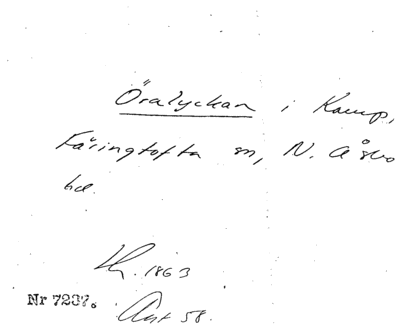 Öralyckan i Kamp,
Färingtofta sn, N. Åsbo
hd.
1863
Nr 7237. Avst 58.